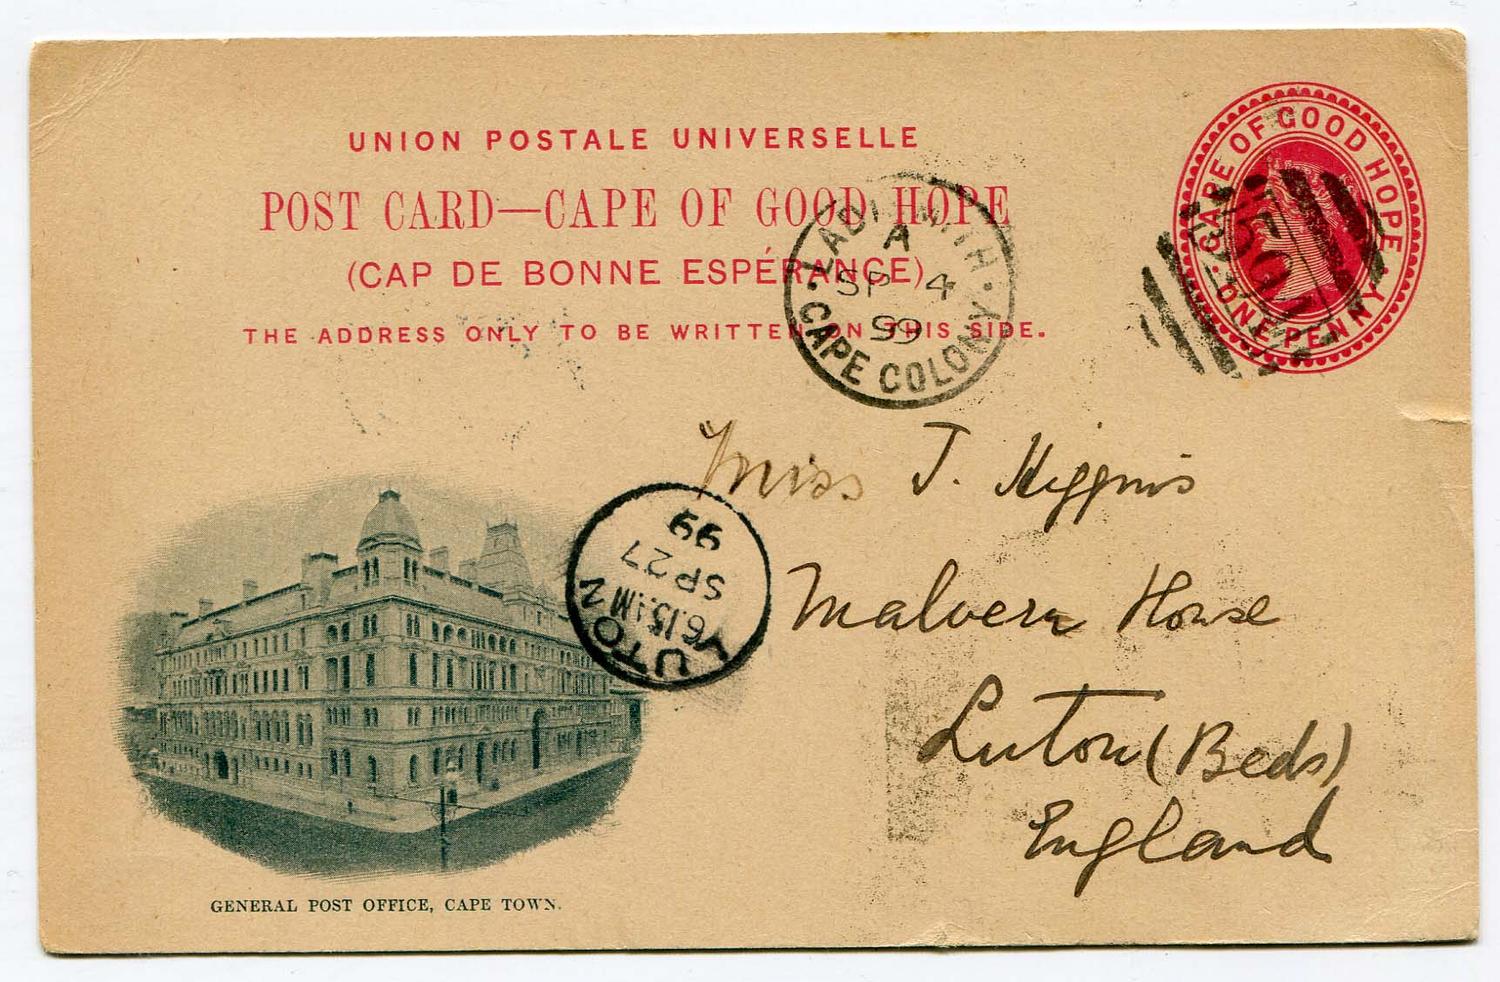 UNION POSTALE UNIVERSELLE
POST CARD—CAPE OF GOOD HOPE
(CAP DE BONNE ESPÉRANCE)
THE ADDRESS ONLY TO BE WRITTEN ON THIS SIDE.
CAPE OF GOOD HOPE
ONE PENNY
LADISMITH
A
SP 4
99
CAPE COLONY
Miss J. Higgins
Malvern House
Luton (Beds)
England
LUTON
6.15 AM
SP 27
99
GENERAL POST OFFICE, CAPE TOWN.